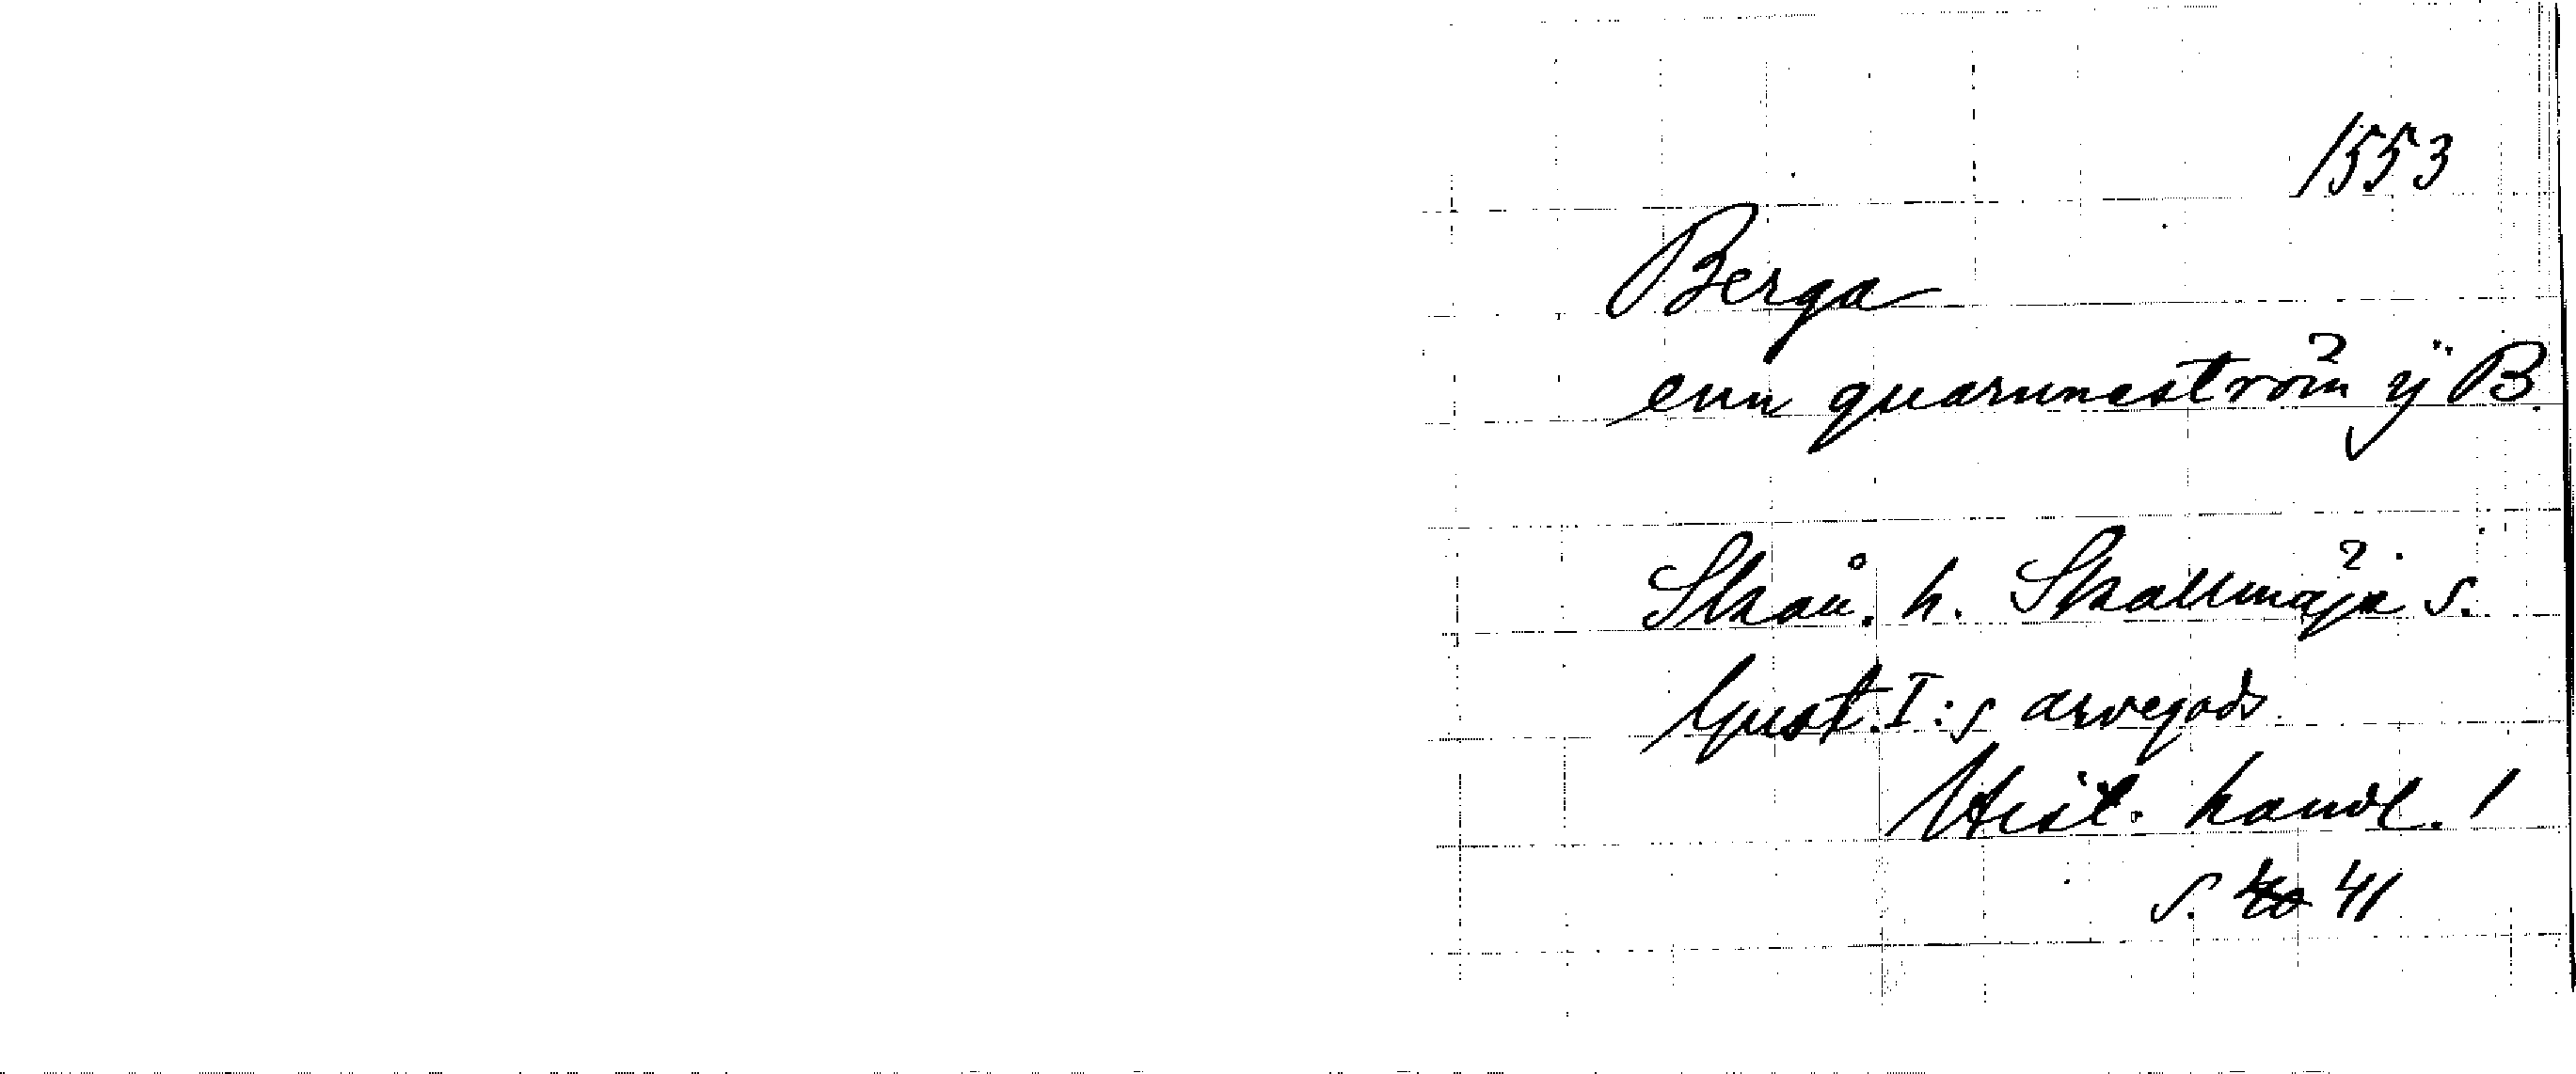 1553
Berga
enn quarnneström ÿ B.
Skån. h. Skallmeja s.
Gust. I:s arvegods
Hist. handl. 1
s. 41